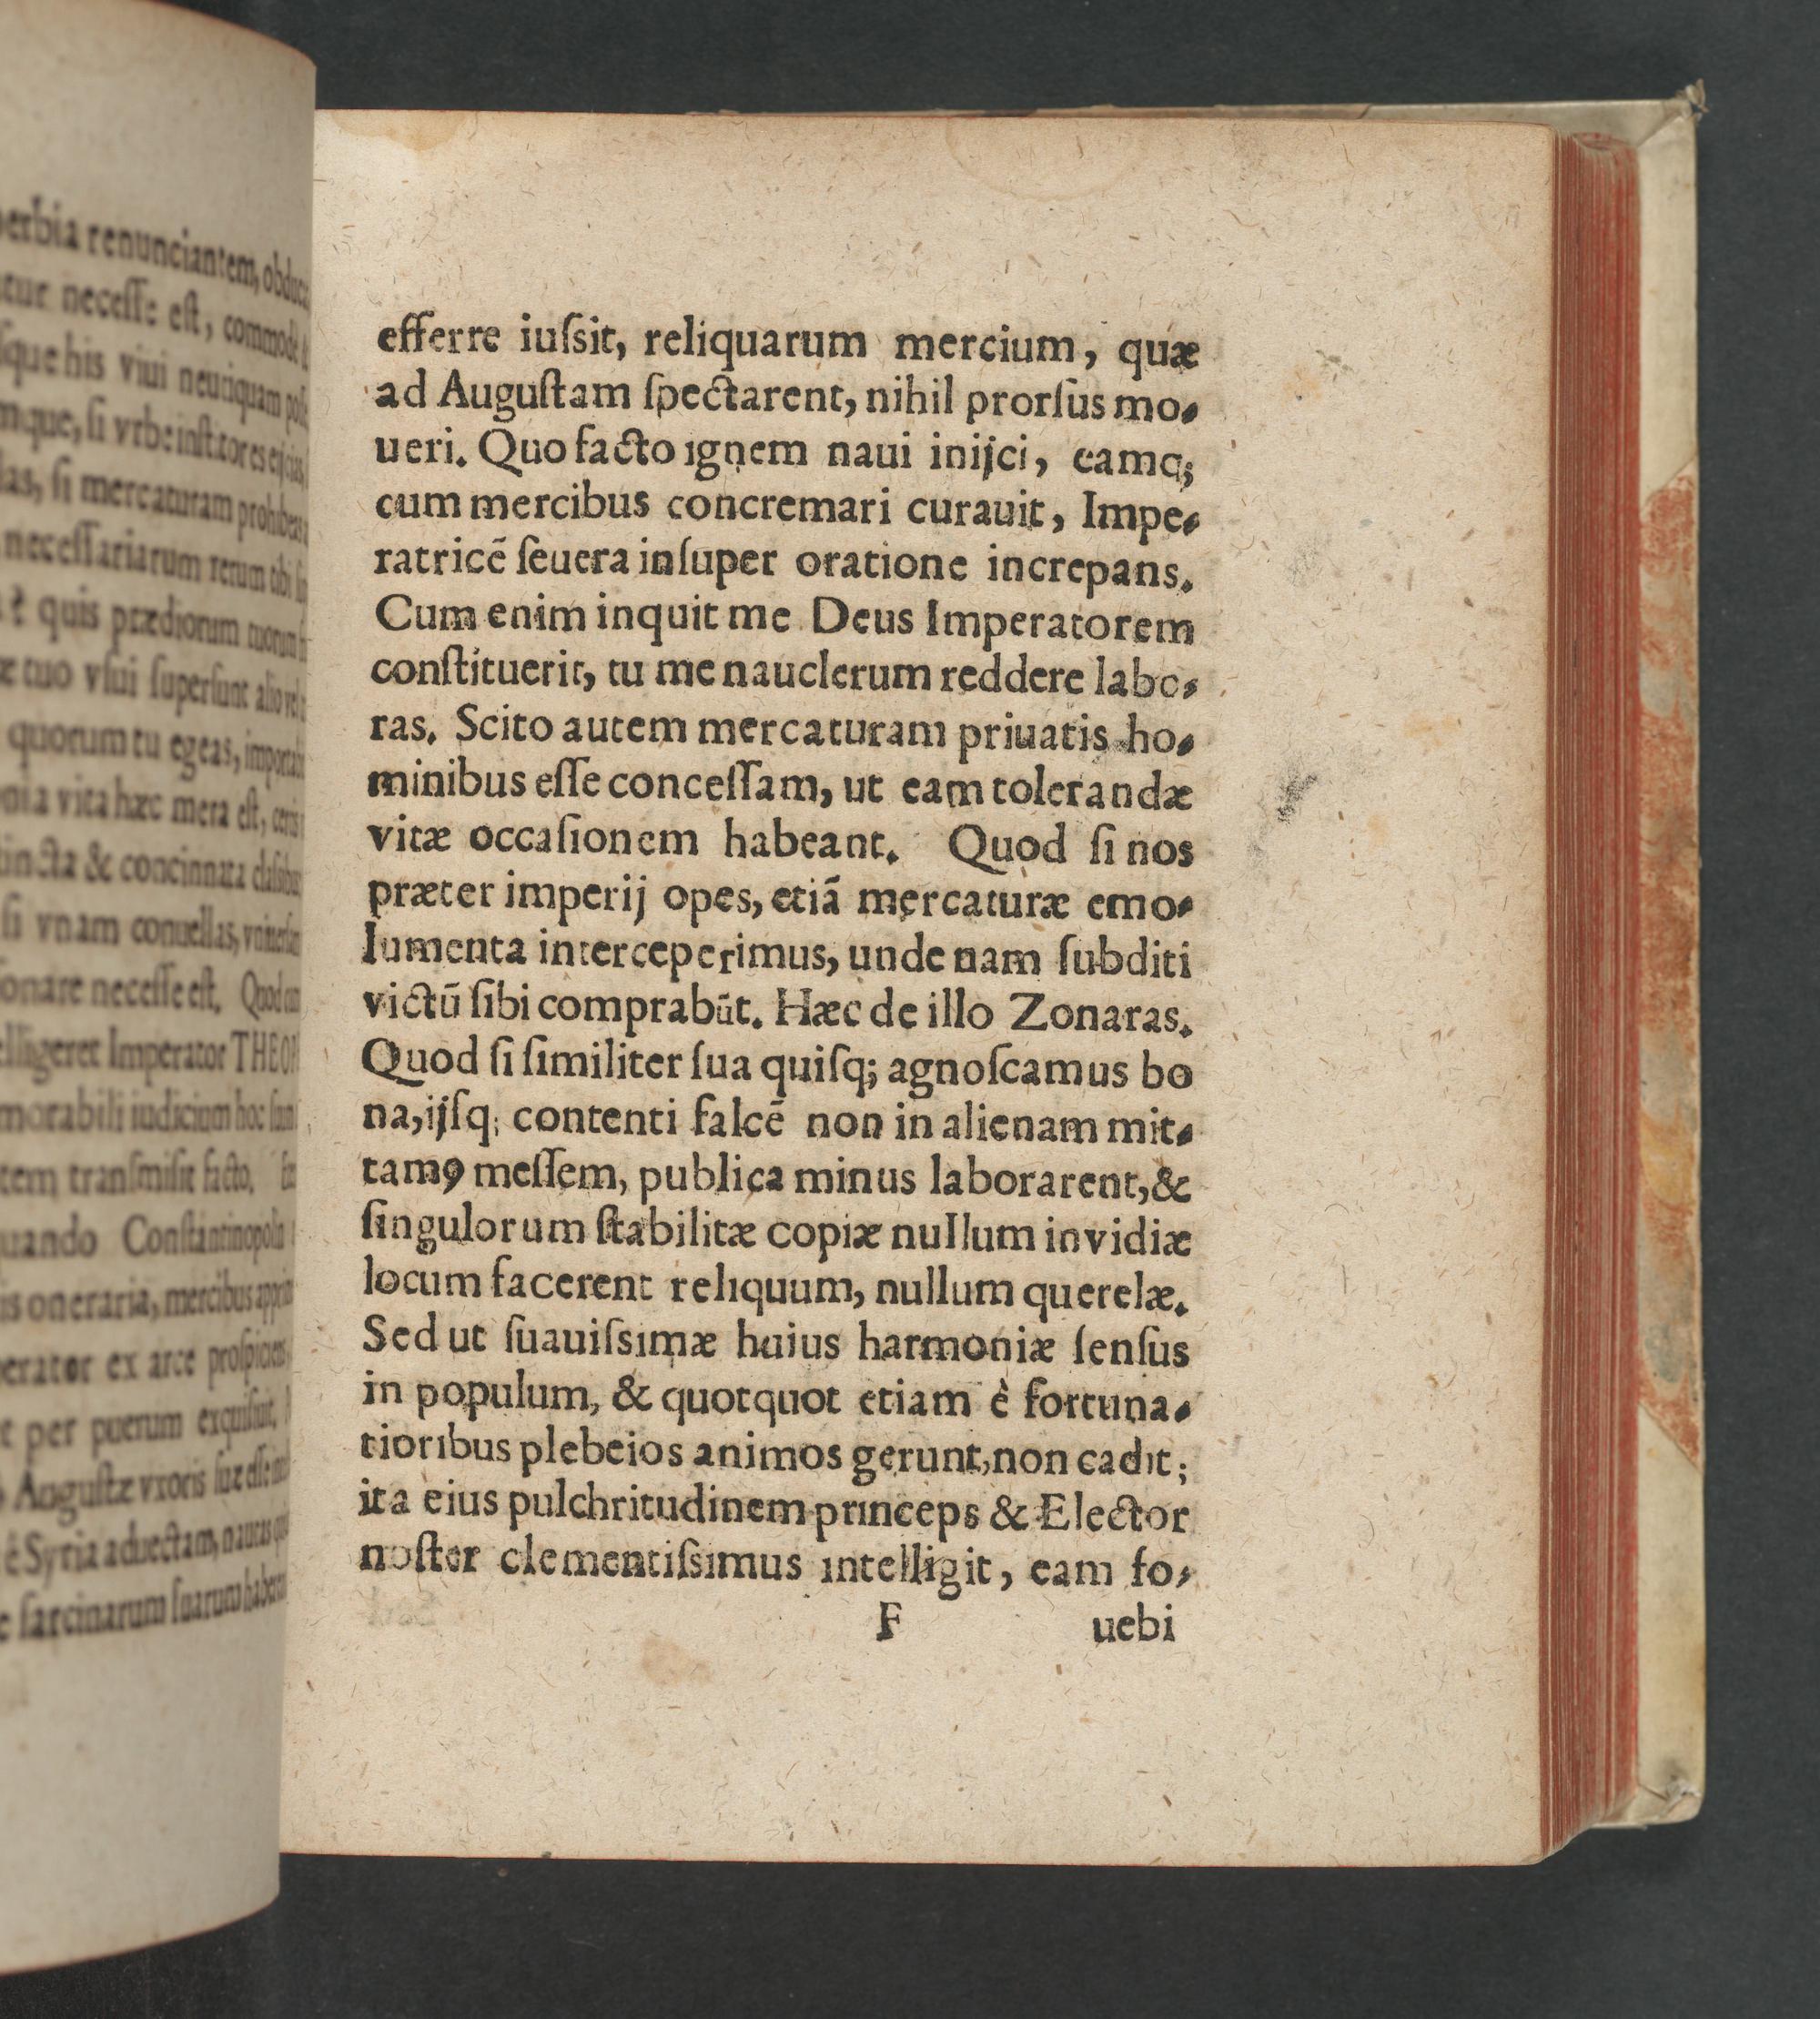 erbia renunciantem, obduc
tur necesse est, commode
sque his viui neutiquam pos
mque, si vrbe institores eijcias,
las, si mercaturam prohibeas
necessariarum rerum tibi
quis prædiorum tuorum
æ tuo vsui supersunt alio
quorum tu egeas, import
vita hæc mera est,
tincta & concinnata
si vnam conuellas, vniuers
onare necesse est. Quod
elligeret Imperator THEOP
morabili iudicium hoc
tem transmisit facto.
uando Constantinopoli
is oneraria, mercibus
perator ex arce prospiciens
t per puerum exquisiuit,
Augustæ vxoris suæ esse
è Syria aduectam, nautas
e sarcinarum suarum haberent
efferre iuſsit, reliquarum mercium, quæ
ad Auguſtam ſpectarent, nihil prorſus mo⸗
ueri. Quo facto ignem naui inijci, eamq;
cum mercibus concremari curauit, Impe⸗
ratricē ſeuera inſuper oratione increpans.
Cum enim inquit me Deus Imperatorem
conſtituerit, tu me nauclerum reddere labo⸗
ras. Scito autem mercaturam priuatis ho⸗
minibus eſſe conceſſam, ut eam tolerandæ
vitæ occaſionem habeant. Quod ſi nos
præter imperij opes, etiā mercaturæ emo⸗
lumenta interceperimus, unde nam ſubditi
victū ſibi comprabūt. Hæc de illo Zonaras.
Quod ſi ſimiliter ſua quiſq; agnoſcamus bo
na, ijſq; contenti falcē non in alienam mit⸗
tamꝰ meſſem, publica minus laborarent, &
ſingulorum ſtabilitæ copiæ nullum invidiæ
locum facerent reliquum, nullum querelæ.
Sed ut ſuauiſsimæ huius harmoniæ ſenſus
in populum, & quotquot etiam è fortuna⸗
tioribus plebeios animos gerunt, non cadit;
ita eius pulchritudinem princeps & Elector
noſter clementiſsimus intelligit, eam fo⸗
F uebi